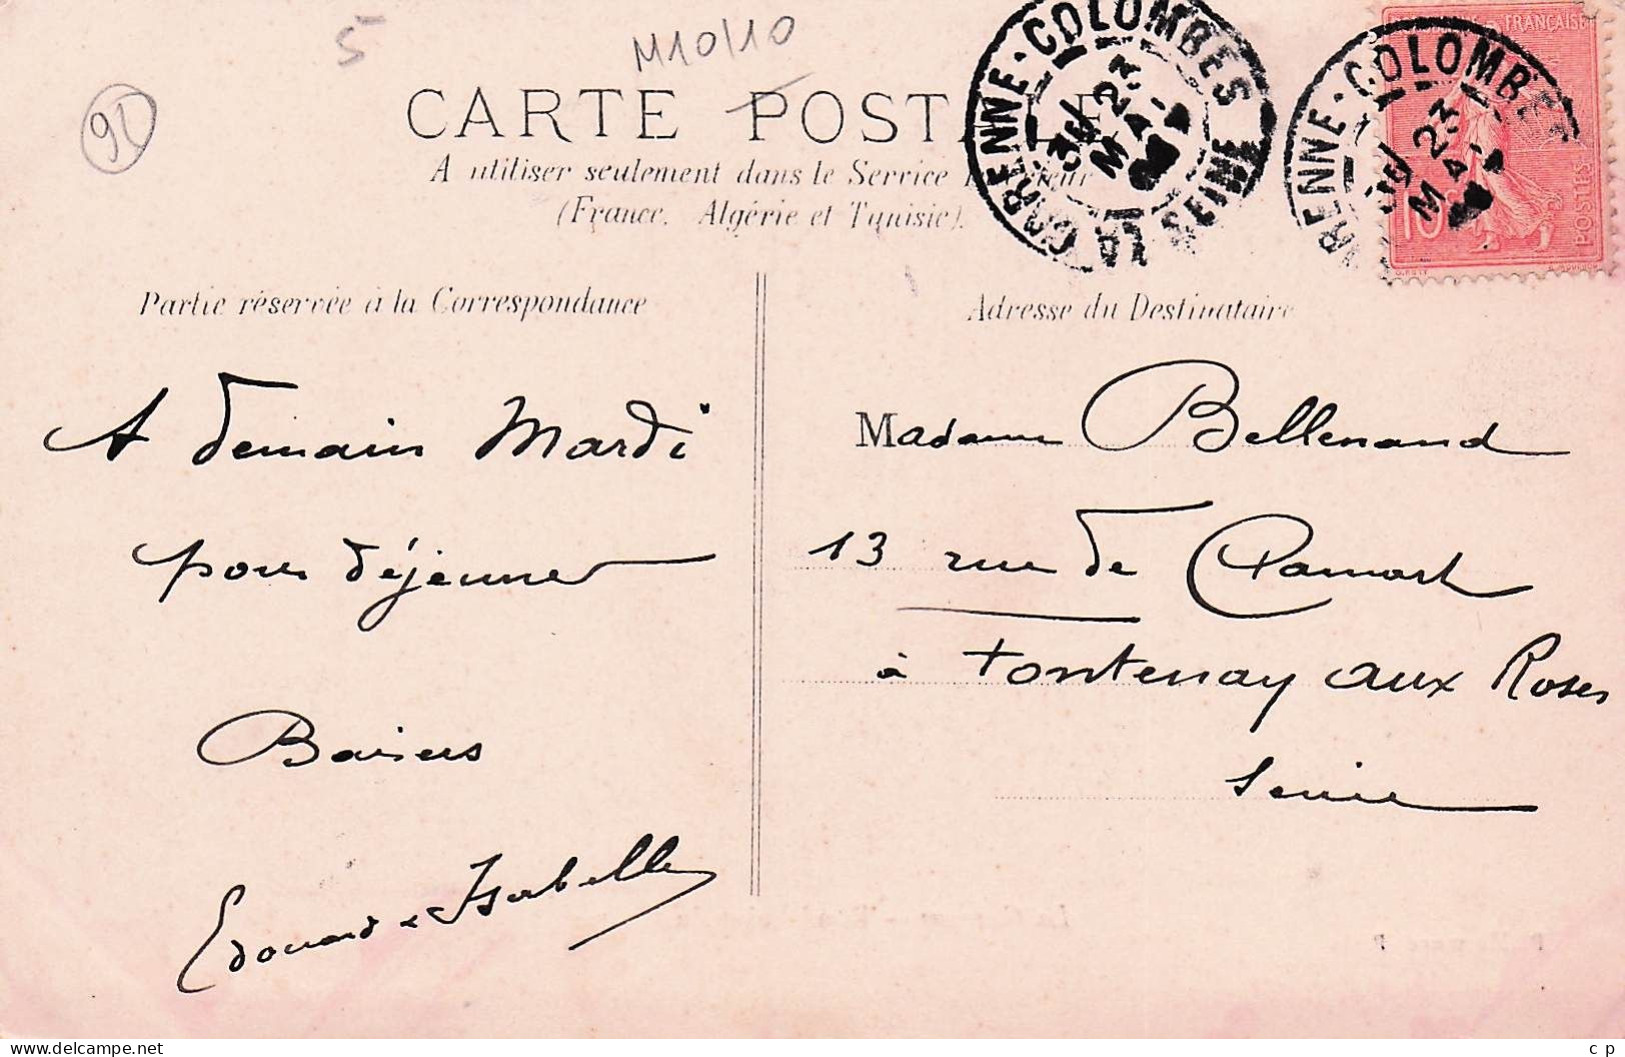 5
M10/10
91
CARTE POSTALE
A utiliser seulement dans le Service Intérieur
(France, Algérie et Tunisie).
LA GARENNE-COLOMBES
SEINE
23
GARENNE-COLOMBES
23
FRANÇAISE
POSTES
10
Partie réservée à la Correspondance
A demain Mardi
pour déjeuner
Baisers
Edouard & Isabelle
Adresse du Destinataire
Madame Bellenand
13 rue de
à Fontenay aux Roses
Seine
c p
www.delcampe.net